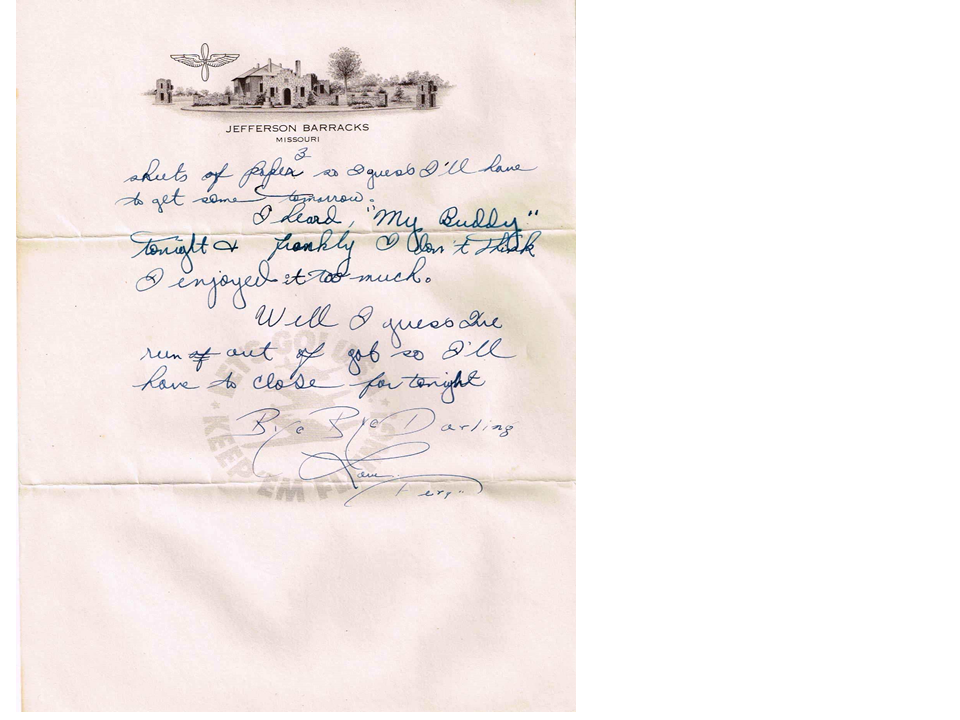 JEFFERSON BARRACKS
MISSOURI
3
sheets of paper so I guess I'll have
to get some tomorrow.
I heard, "My Buddy"
tonight & frankly I don't think
I enjoyed it too much.
Well I guess I've
run of out of gab so I'll
have to close for tonight
Bye Bye Darling
Love
LET'S GO! U.S.A.
KEEP 'EM FLYING